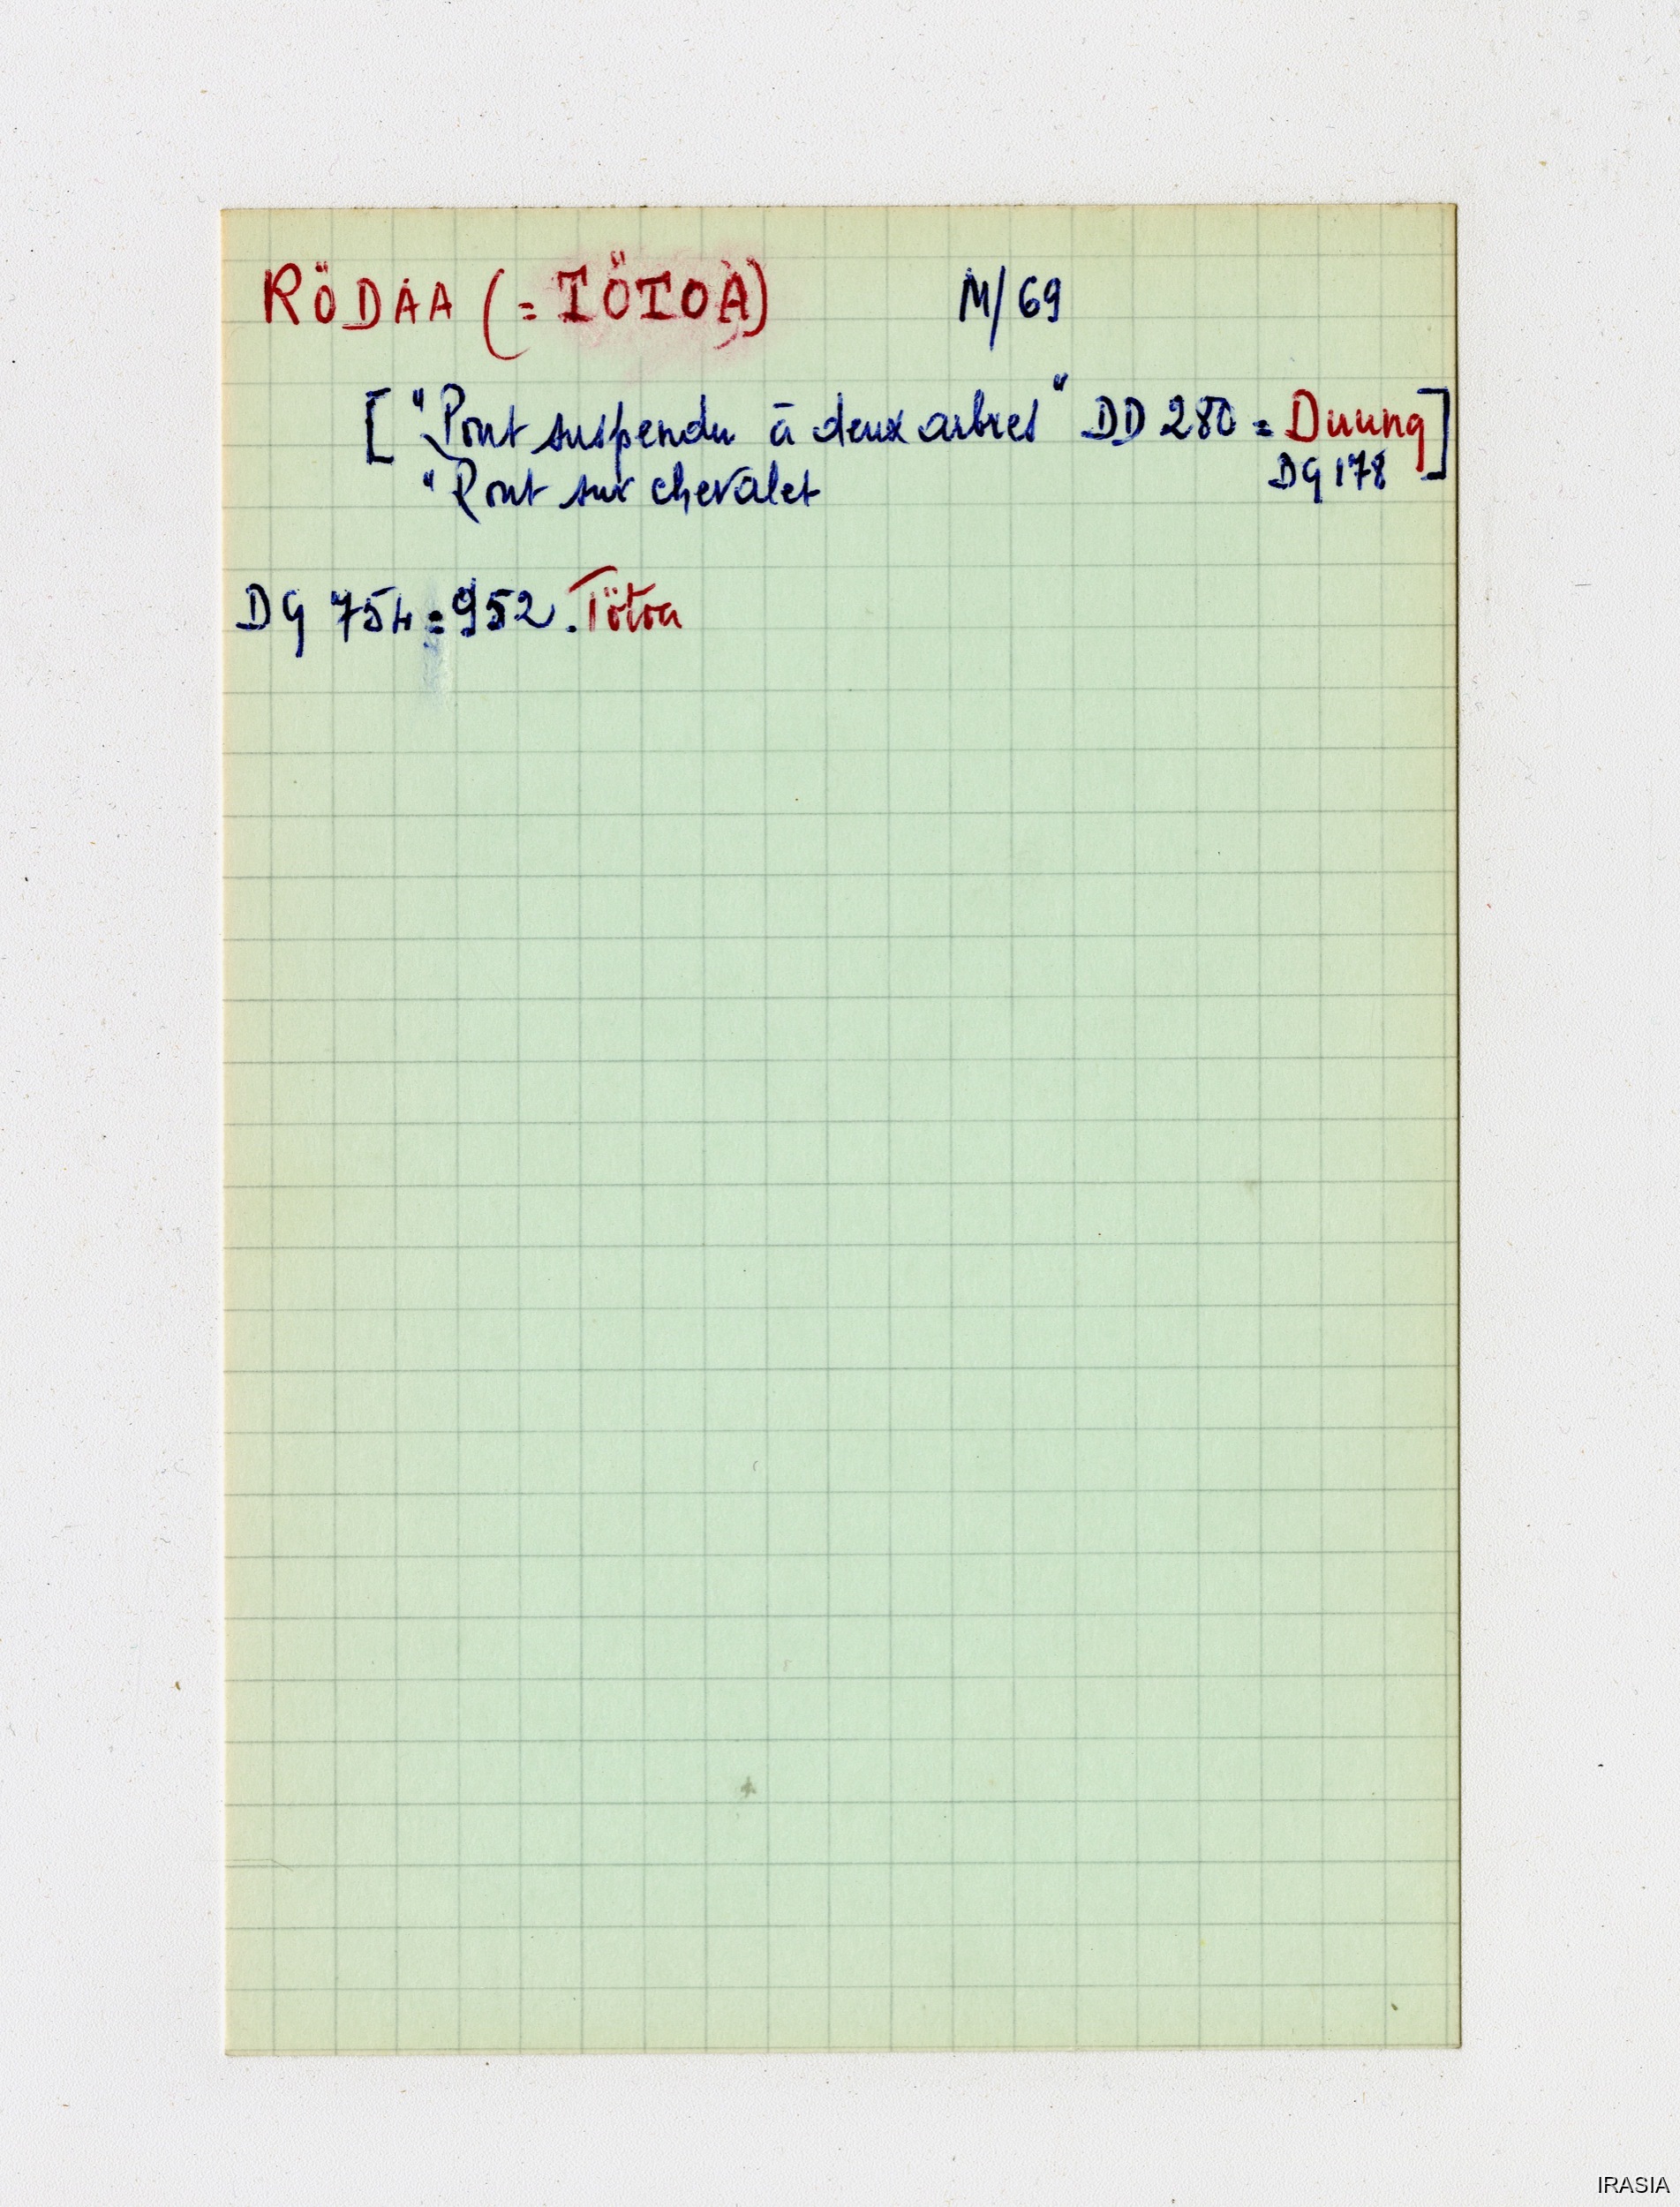 RÖDAA (= TÖTOA) M/69
["Pont suspendu à deux arbres" DD 280 = Duung]
"Pont sur chevalet DG 178
DG 754 = 952. Tötoa
IRASIA